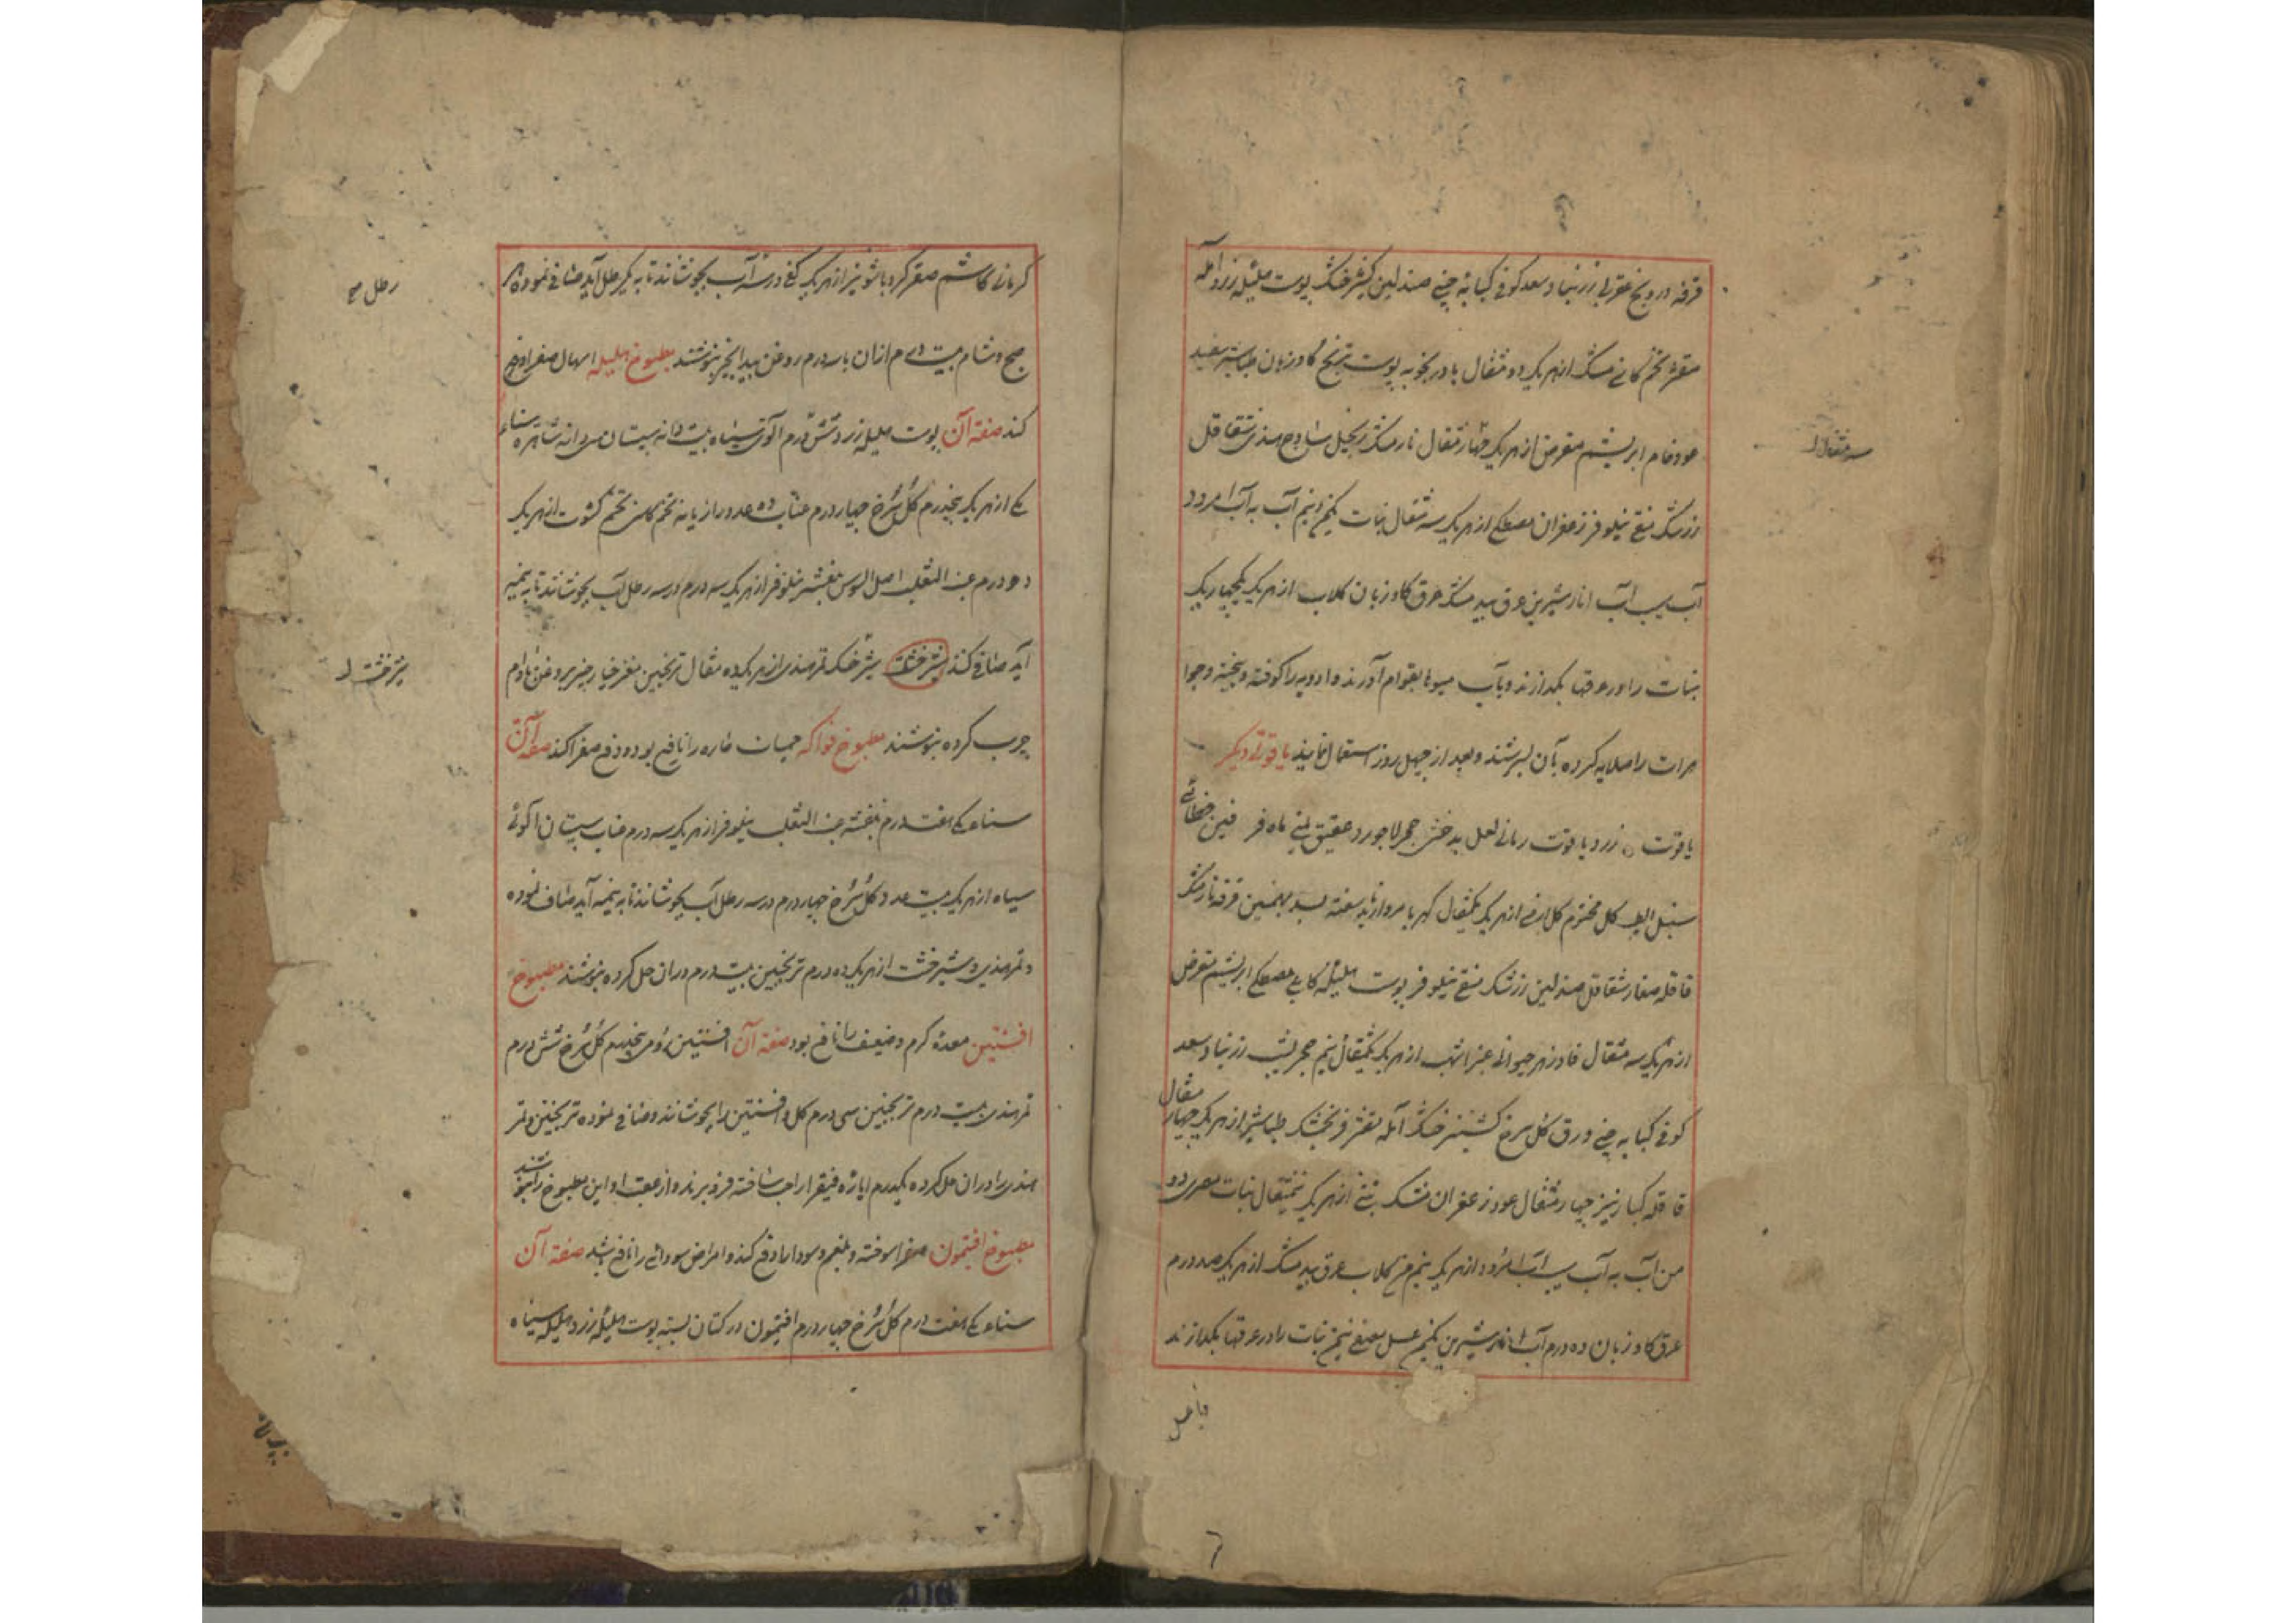 قرفه درونج عقربی زرنباد سعد کوفی کبابه چینی صندلین کشنیز خشک پوست هلیله زرد آمله
مقشر تخم کاسنی مشک از هر یک دو مثقال بادرنجبویه پوست ترنج گاوزبان طباشیر سفید
عود خام ابریشم مقرض از هر یک چهار مثقال نارمشک زنجبیل ساذج هندی شقاقل
سه مثقال
زرشک منقی نیلوفر زعفران مصطکی از هر یک سه مثقال نبات یکمن و نیم آب به آب امرود
آب سیب آب انار شیرین عرق بید مشک عرق گاوزبان گلاب از هر یک
نبات را در عرقها بگدازند و بآب میوها بقوام آورند و ادویه را کوفته و بیخته و جوا
هرات را صلایه کرده بآن بسرشند و بعد از چهل روز استعمال نمایند یاقوتی دیگر
یاقوت زرد یاقوت رمانی لعل بدخش حجر لاجورد عقیق یمنی ماه فرفین خطائی
سنبل الطیب گل مختوم گل ارمنی از هر یک یکمثقال کهربا مروارید سفته بسد بهمنین قرفه نارمشک
قاقله صغار شقاقل صندلین زرشک منقی نیلوفر پوست هلیله کابلی مصطکی ابریشم مقرض
از هر یک سه مثقال فادزهر حیوانی عنبر اشهب از هر یک یکمثقال نیم حجر یشب زرنباد سعد
کوفی کبابه چینی ورق گل سرخ کشنیز خشک آمله مقشر فرنجمشک طباشیر از هر یک چهار مثقال
قاقله کبار نیز چهار مثقال عود زعفران مشک تبتی از هر یک نیمثقال نبات مصری دو
من آب به آب سیب آب امرود از هر یک نیم من گلاب عرق بید مشک از هر یک صد درم
عرق گاوزبان ده درم آب انار شیرین یکمن عسل مصفی نیم من نبات را در عرقها بگدازند
کرمانی کاشم صعتر کرویا شونیز از هر یک کفی در سه آب بجوشانند تا به یکرطل آید صافی نموده هر
رطل صح
صبح و شام بیست درم ازان با سه درم روغن بیدانجیر بنوشند مطبوخ هلیله اسهال صفرا و بلغم
کند صفة آن پوست هلیله زرد شش درم آلوی سیاه بیست دانه سپستان سی دانه شاهتره سناء
مکی از هر یک پنجدرم گل سرخ چهار درم عناب ده عدد رازیانه تخم کاسنی تخم کشوت از هر یک
دو درم عنب الثعلب اصل السوس بنفشه نیلوفر از هر یک سه درم در سه رطل آب بجوشانند تا به نیمه
آید صافی کنند شیرخشت شیرخشک تمرهندی از هر یک ده مثقال ترنجبین مغز خیارچنبر بروغن بادام
شیرخشت
چرب کرده بنوشند مطبوخ فواکه حمیات حاره را نافع بود و دفع صفرا کند صفة آن
سناء مکی هفت درم بنفشه عنب الثعلب نیلوفر از هر یک سه درم عناب سپستان آلوی
سیاه از هر یک بیست عدد گل سرخ چهار درم در سه رطل آب بجوشانند تا به نیمه آید صاف نموده
و تمرهندی و شیرخشت از هر یک ده درم ترنجبین بیست درم دران حل کرده بنوشند مطبوخ
افسنتین معدهٔ گرم و ضعیف را نافع بود صفة آن افسنتین رومی پنجدرم گل سرخ شش درم
تمرهندی بیست درم ترنجبین سی درم گل و افسنتین را بجوشانند و صافی نموده ترنجبین و تمر
هندی را دران حل کرده یکدرم ایاره فیقرا را حب ساخته فرو برند و از عقب او این مطبوخ را بنوشند
مطبوخ افتیمون صفرا سوخته و بلغم و سودا را دفع کند و امراض سودائی را نافع باشد صفة آن
سناء مکی هفت درم گل سرخ چهار درم افتیمون در کتان بسته پوست هلیله زرد هلیله سیاه